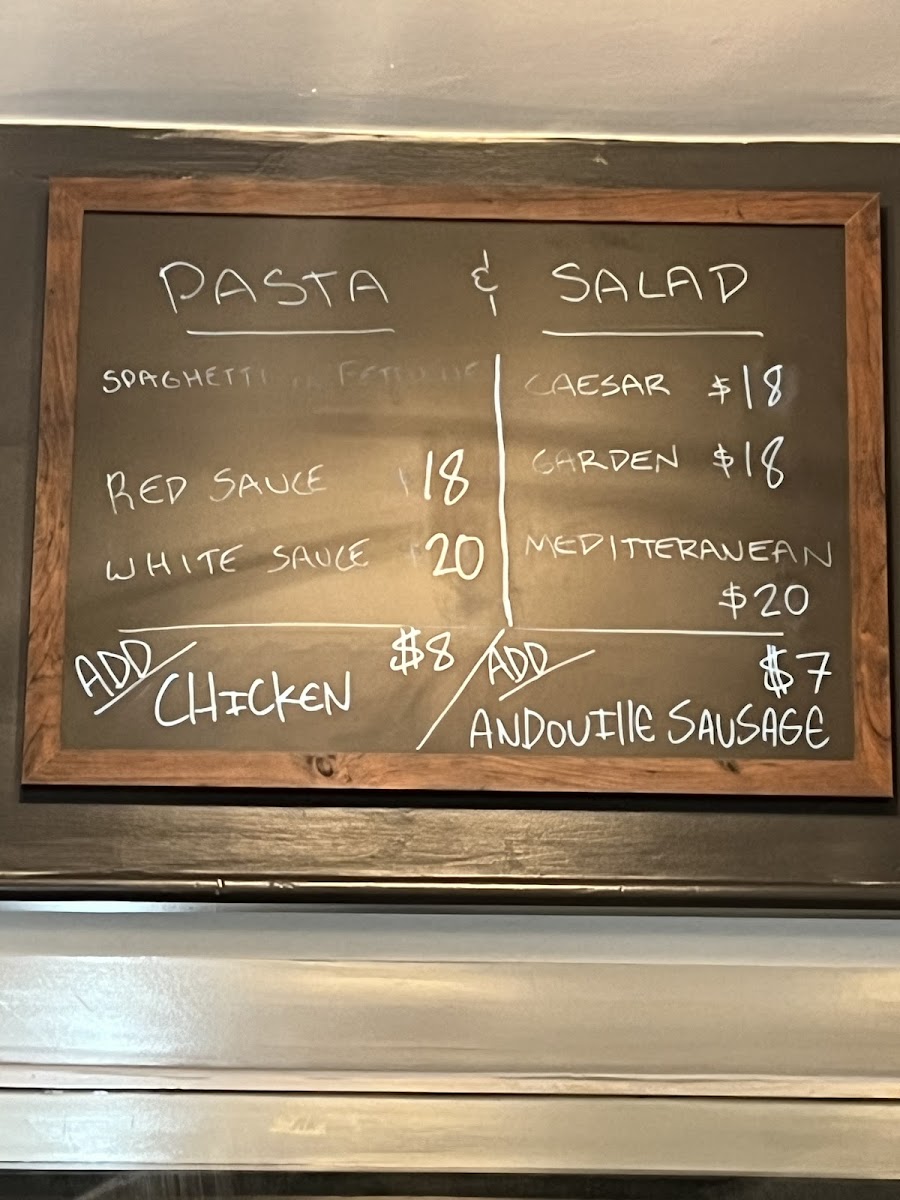 PASTA & SALAD
SPAGHETTI
RED SAUCE 18
WHITE SAUCE 20
CAESAR $18
GARDEN $18
MEDITTERANEAN
$20
ADD/ CHICKEN $8
ADD/ $7
ANDOUIllE SAUSAGE